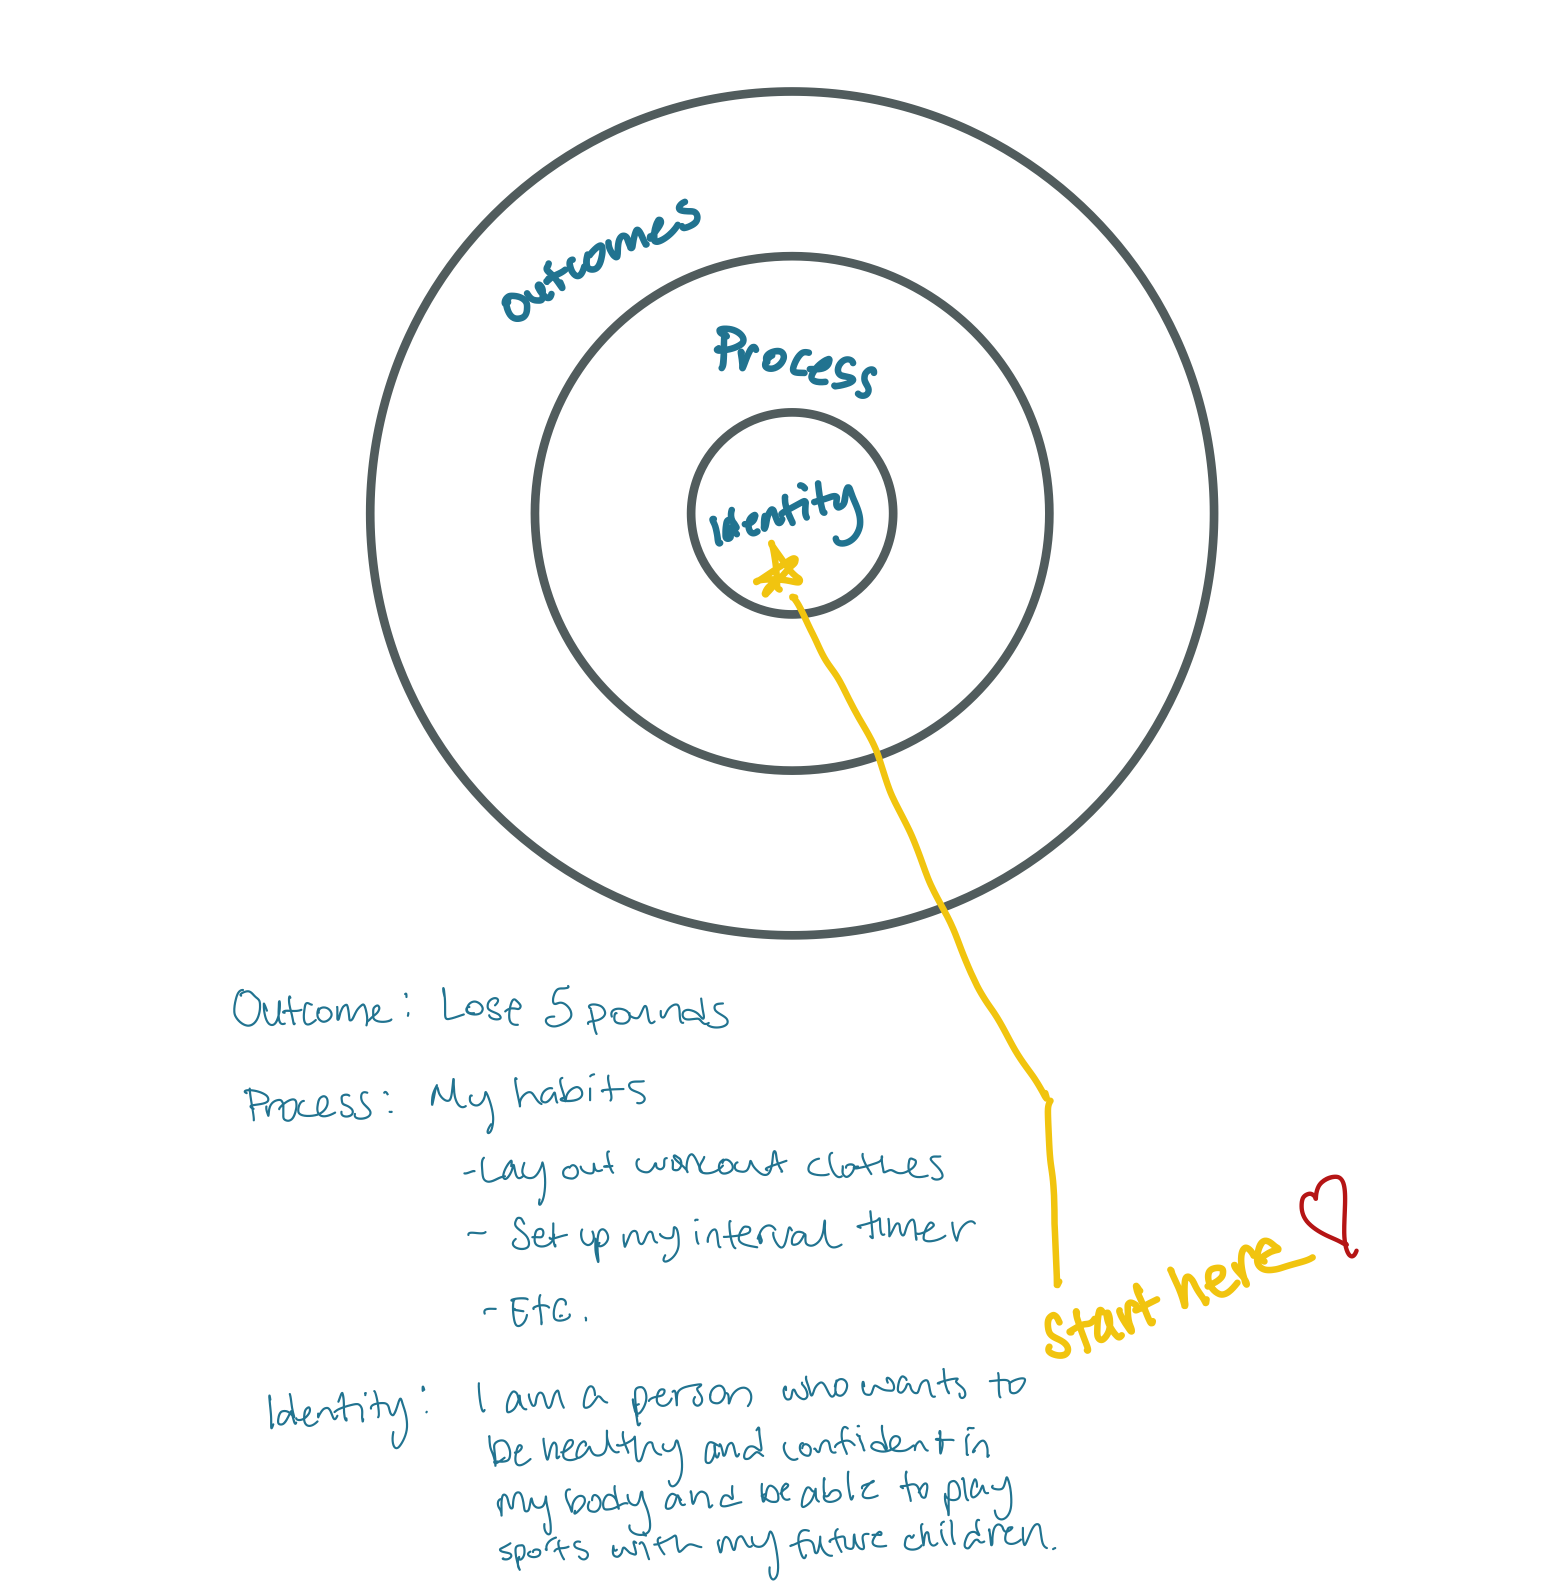 Outcomes
Process
Identity
Outcome: Lose 5 pounds
Process: My habits
- Lay out workout clothes
- Set up my interval timer
- Etc.
Start here
Identity: I am a person who wants to
be healthy and confident in
my body and be able to play
sports with my future children.